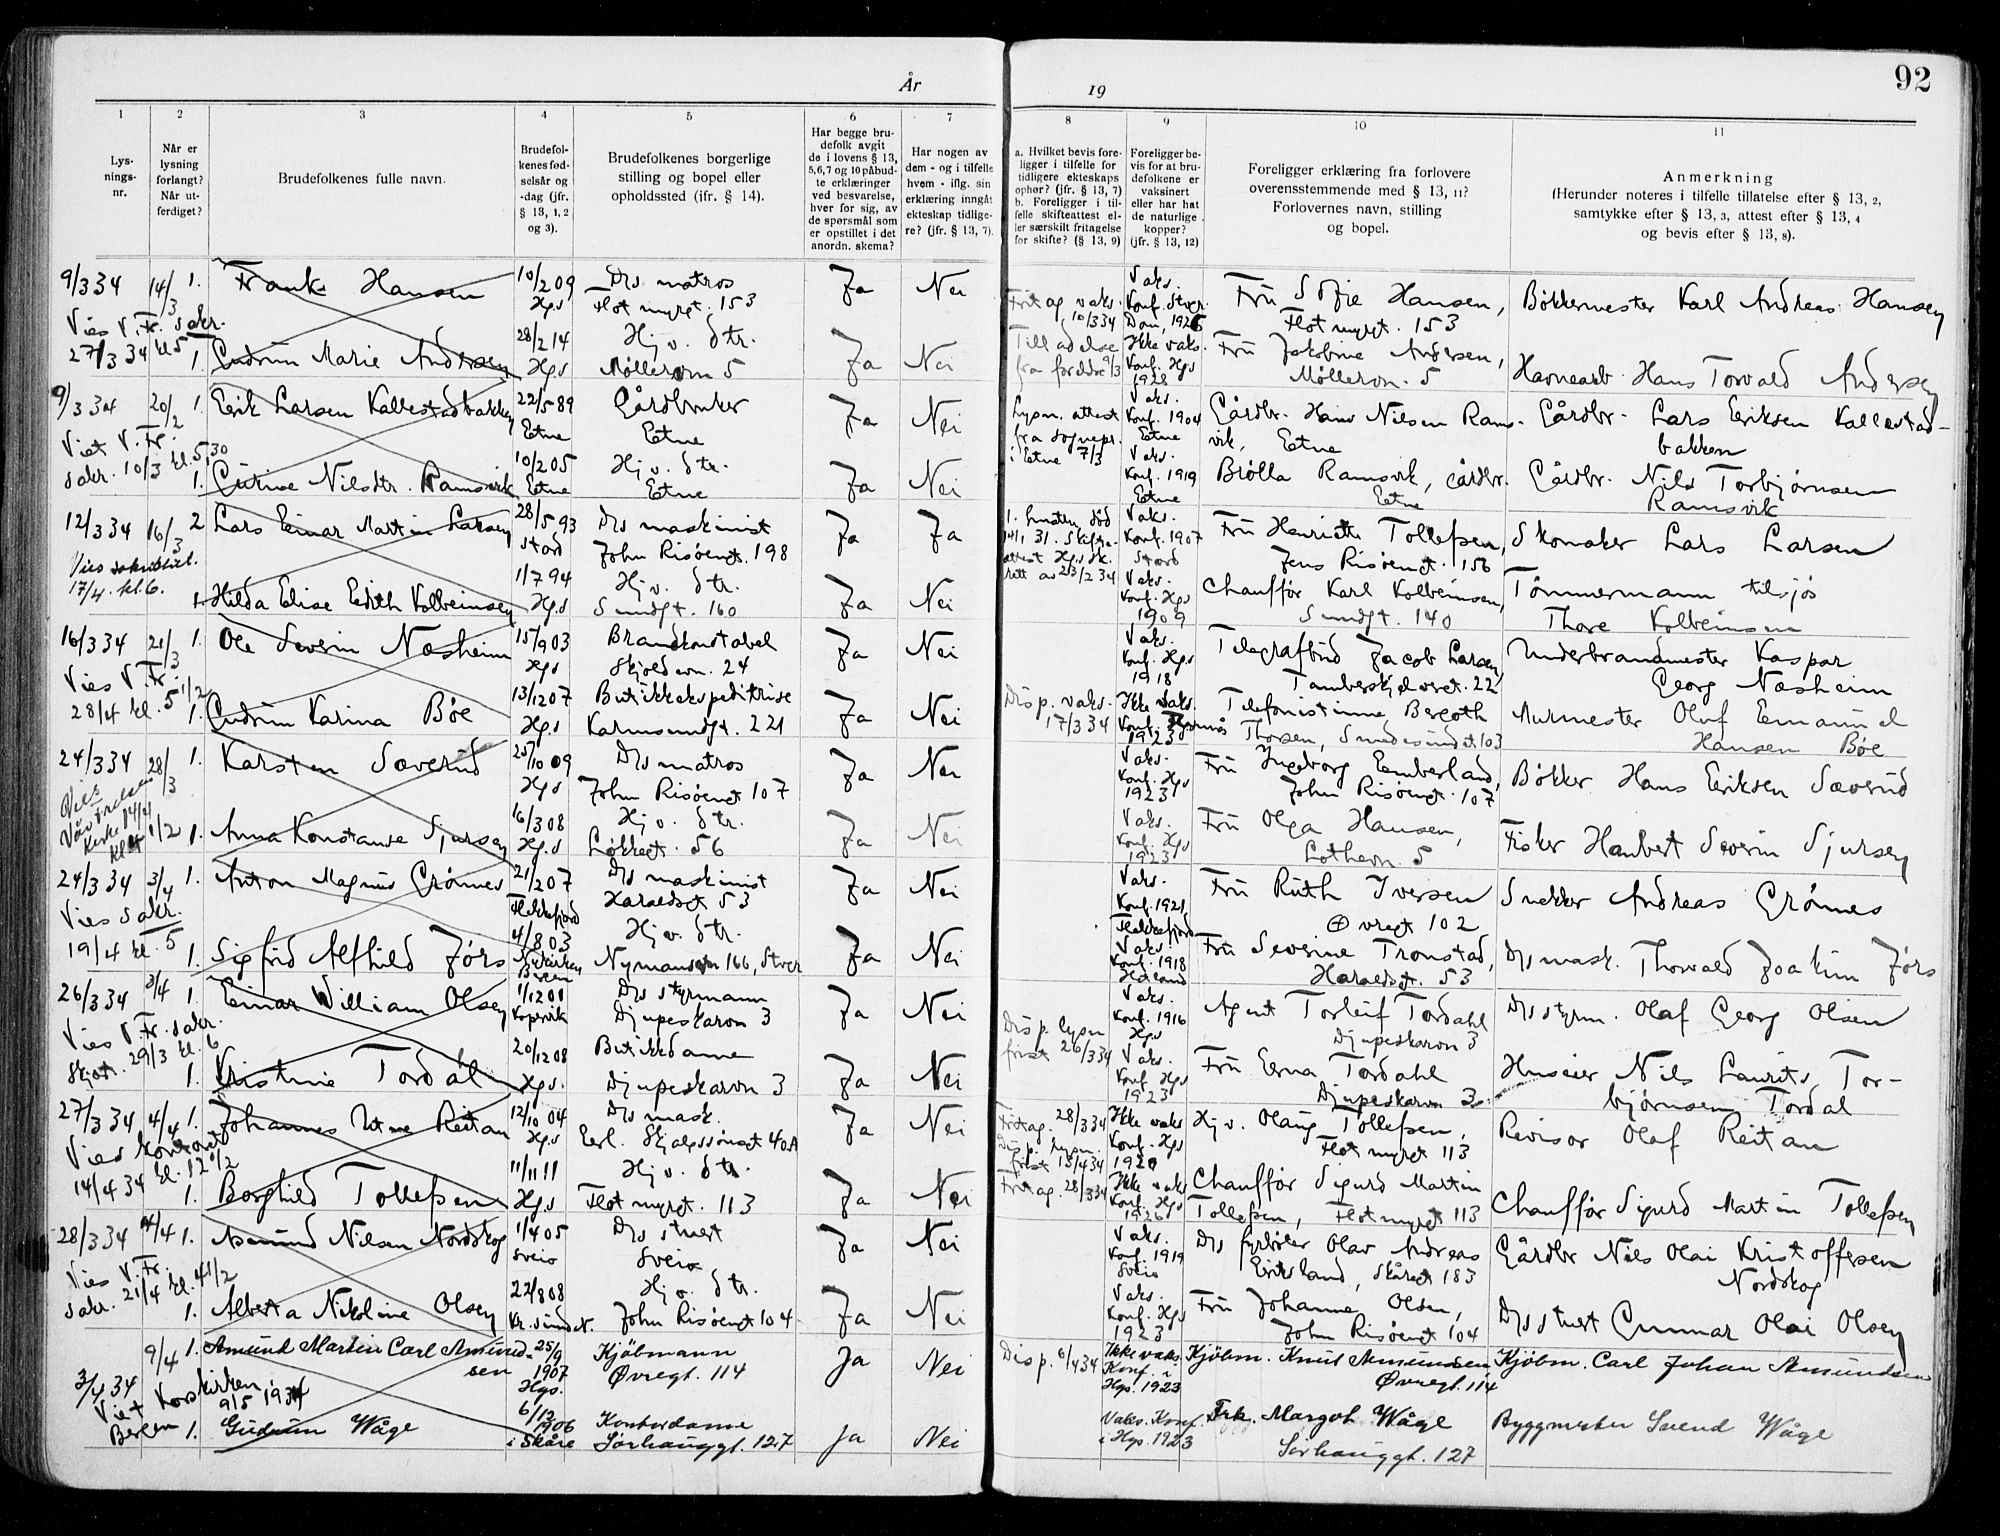 92
År
19
1 2 3 4 5 6 7 8 9 10 11
Lys-
nings-
nr.
Når er
lysning
forlangt?
Når ut-
ferdiget?
Brudefolkenes fulle navn.
Brudefol-
kenes fød-
selsår og
-dag (jfr.
§ 13, 1, 2
og 3).
Brudefolkenes borgerlige
stilling og bopel eller
opholdssted (jfr. § 14).
Har begge bru-
defolk avgit
de i lovens § 13,
5,6,7 og 10 påbud-
te erklæringer
ved besvarelse,
hver for sig, av
de spørsmål som
er opstillet i det
anordn. skema?
Har nogen av
dem - og i tilfelle
hvem - iflg. sin
erklæring inngått
ekteskap tidlige-
re? (jfr. § 13, 7).
a. Hvilket bevis fore-
ligger i tilfelle for
tidligere ekteskaps
ophør? (jfr. § 13, 7)
b. Foreligger i til-
felle skifteattest el-
ler særskilt fritagelse
for skifte? (§ 13, 9)
Foreligger be-
vis for at bru-
defolkene er
vaksinert
eller har hat
de naturlige
kopper?
(jfr. § 13, 12)
Foreligger erklæring fra forlovere
overensstemmende med § 13, 11?
Forlovernes navn, stilling
og bopel.
Anmerkning
(Herunder noteres i tilfelle tillatelse efter § 13, 2,
samtykke efter § 13, 3, attest efter § 13, 4
og bevis efter § 13, 8).
9/3 34 14/3 1. Frank Hansen 10/2 09 Hgs D/s matros Flotmyrgt. 153 Ja Nei Fritag vaks. 10/3 34 Vaks. Konf. Fru Sofie Hansen, Flotmyrgt. 153 Bøkkermester Karl Andreas Hansen
Vies V. Fr. sakr. 27/3 34 kl 5 1. Gudrun Marie Andersen 28/2 14 Hgs Hj v. dtr. 5 Ja Nei Tilladelse fra foreldre 9/3 Ikke vaks. Konf. Hgs 1928 Fru Jakobine Andersen, 5 Havnearb. Hans Torvald Andersen
9/3 34 20/2 1. Erik Larsen Kallestadbakken 22/5 89 Etne Gårdbruker Etne Ja Nei Lysn. attest fra sognepr. i Etne 7/3 Vaks. Konf. 1904 Etne Gårdbr. Hans Nilsen Ramsvik, Etne Gårdbr. Lars Eriksen Kallestad-
bakken
Viet V. Fr. sakr. 10/3 kl. 5,30 1. Nilsdtr. Ramsvik 10/2 05 Etne Hj v. dtr. Etne Ja Nei Vaks. Konf. 1919 Etne Ramsvik, Gårdbr. Etne Gårdbr. Nils Torbjørnsen
Ramsvik
12/3 34 16/3 2 Lars Einar Martin Larsen 28/5 93 Stord D/s maskinist John Risøensgt. 198 Ja Ja 1. hustru død 31. Skifteattest Hgs Vaks. Konf. 1907 Stord Fru Henriette Tollefsen, Jens Risøensgt. 156 Skomaker Lars Larsen
Vies 17/4. kl. 6. 1 Hilda Elise Edith Kolbeinsen 1/7 94 Hgs Hj v. dtr. Sundgt. 160 Ja Nei Vaks. Konf. Hgs 1909 Chauffør Karl Kolbeinsen, Sundgt. 140 Tømmermann tilsjøs
Thore Kolbeinsen
16/3 34 21/3 1. Ole Severin Næsheim 15/9 03 Hgs Brandkonstabel 24 Ja Nei Vaks. Konf. Hgs 1918 Telegrafbud Jacob Larsen 22 Underbrandmester Kaspar
Georg Næsheim
Vies V. Fr. 28/4 kl. 5 1/2 1. Gudrun Karina Bøe 13/12 07 Hgs Butikkekspeditrise Karmsundgt. 221 Ja Nei Disp. vaks. 17/3 34 Ikke vaks. Konf. 1923 Telefonistinne Bergoth Thorsen, Smedesundet 103 Murmester Oluf Emanuel
Hansen Bøe
24/3 34 28/3 1. Karsten Sæverud 25/10 09 Hgs D/s matros John Risøensgt 107 Ja Nei Vaks. Konf. Hgs 1923 Fru Ingeborg Emberland, John Risøensgt. 107 Bøkker Hans Eriksen Sæverud
Vies Vår Frelsers Kirke 14/4 kl 1/2 1. Anna Konstanse Sjursen 16/3 08 Hgs Hj v. dtr. Løkkegt. 56 Ja Nei Vaks. Konf. Hgs 1923 Fru Olga Hansen, 5 Fisker Severin Sjursen
24/3 34 3/4 1. Anton Magnus Grønnes 21/2 07 Flekkefjord D/s maskinist Haraldsgt 53 Ja Nei Vaks. Konf. 1921 Flekkefjord Fru Ruth Iversen Øvregt 102 Snekker Andreas Grønnes
Vies sakr. 19/4 kl. 5 1. Sigfrid Alfhild Førs 4/8 03 Nykirken Bergen Hj v. dtr. 166, Ja Nei Vaks. Konf. 1918 Fru Severine Tronstad, Haraldsgt. 53 D/s mask. Thorvald Joakim Førs
26/3 34 3/4 1. Einar William Olsen 1/12 01 Kopervik D/s styrmann Djupeskarvn 3 Ja Nei Disp. lysn frist 26/3 34 Vaks. Konf. 1916 Hgs Agent Torleif Tordahl Djupeskarvn 3 D/s styrm. Olaf Georg Olsen
Vies V. Fr. sakr. 29/3 kl. 6 1. Kristine Tordal 20/12 08 Hgs. Butikkdame Djupeskarvn 3 Ja Nei Vaks. Konf. Hgs 1923 Fru Erna Tordahl Djupeskarvn 3 Huseier Nils Laurits Tor-
bjørnsen Tordal
27/3 34 4/4 1. Johannes Utne Reitan 12/10 04 Hgs D/s mask. Erl. Skjalgssønsgt 40A Ja Nei Fritag. 28/3 34 Disp. lysn. frist 13/4 34 Ikke vaks Konf. Hgs 1920 Hj v. Olaug Tollefsen, Flotmyrgt 113 Revisor Olaf Reitan
Vies kontoret 14/4 34 kl. 12 1/2 1. Borghild Tollefsen 11/11 11 Hgs Hj v. dtr. Flotmyrgt. 113 Ja Nei Fritag. 28/3 34 Ikke vaks Konf. Hgs 1926 Chauffør Sigurd Martin Tollefsen, Flotmyrgt 113 Chauffør Sigurd Martin Tollefsen
28/3 34 4/4 1. Asmund Nilsen Nordskog 1/4 05 Sveio D/s stuert Sveio Ja Nei Vaks. Konf. 1919 Sveio D/s fyrbøter Olav Andreas Eriksland, Skåregt 183 Gårdbr Nils Olai Kristoffersen
Nordskog
Vies V. Fr. sakr. 21/4 kl. 4 1/2 1. Alberta Nikoline Olsen 22/8 08 Kr. sund N. Hj v. dtr. John Risøensgt 104 Ja Nei Vaks. Konf. Hgs 1923 Fru Johanne Olsen, John Risøensgt 104 D/s stuert Gunnar Olai Olsen
3/4 34 9/4 1. Amund Martin Carl Amund-
sen 25/9 1907 Hgs. Kjøbmann Øvregt. 114 Ja Nei Disp. 6/4 34 Ikke vaks. Konf. i Hgs. 1923 Kjøbm. Knut Amundsen Øvregt. 114 Kjøbm. Carl Johan Amundsen
Viet Korskirken Bergen 9/5 1934 1. Gudrun Wåge 6/12 1906 i Skåre Kontordame Sørhauggt. 127 Ja Nei Vaks. Konf. i Hgs. 1923 Frk. Margot Wåge Sørhauggt. 127 Byggmester Svend Wåge